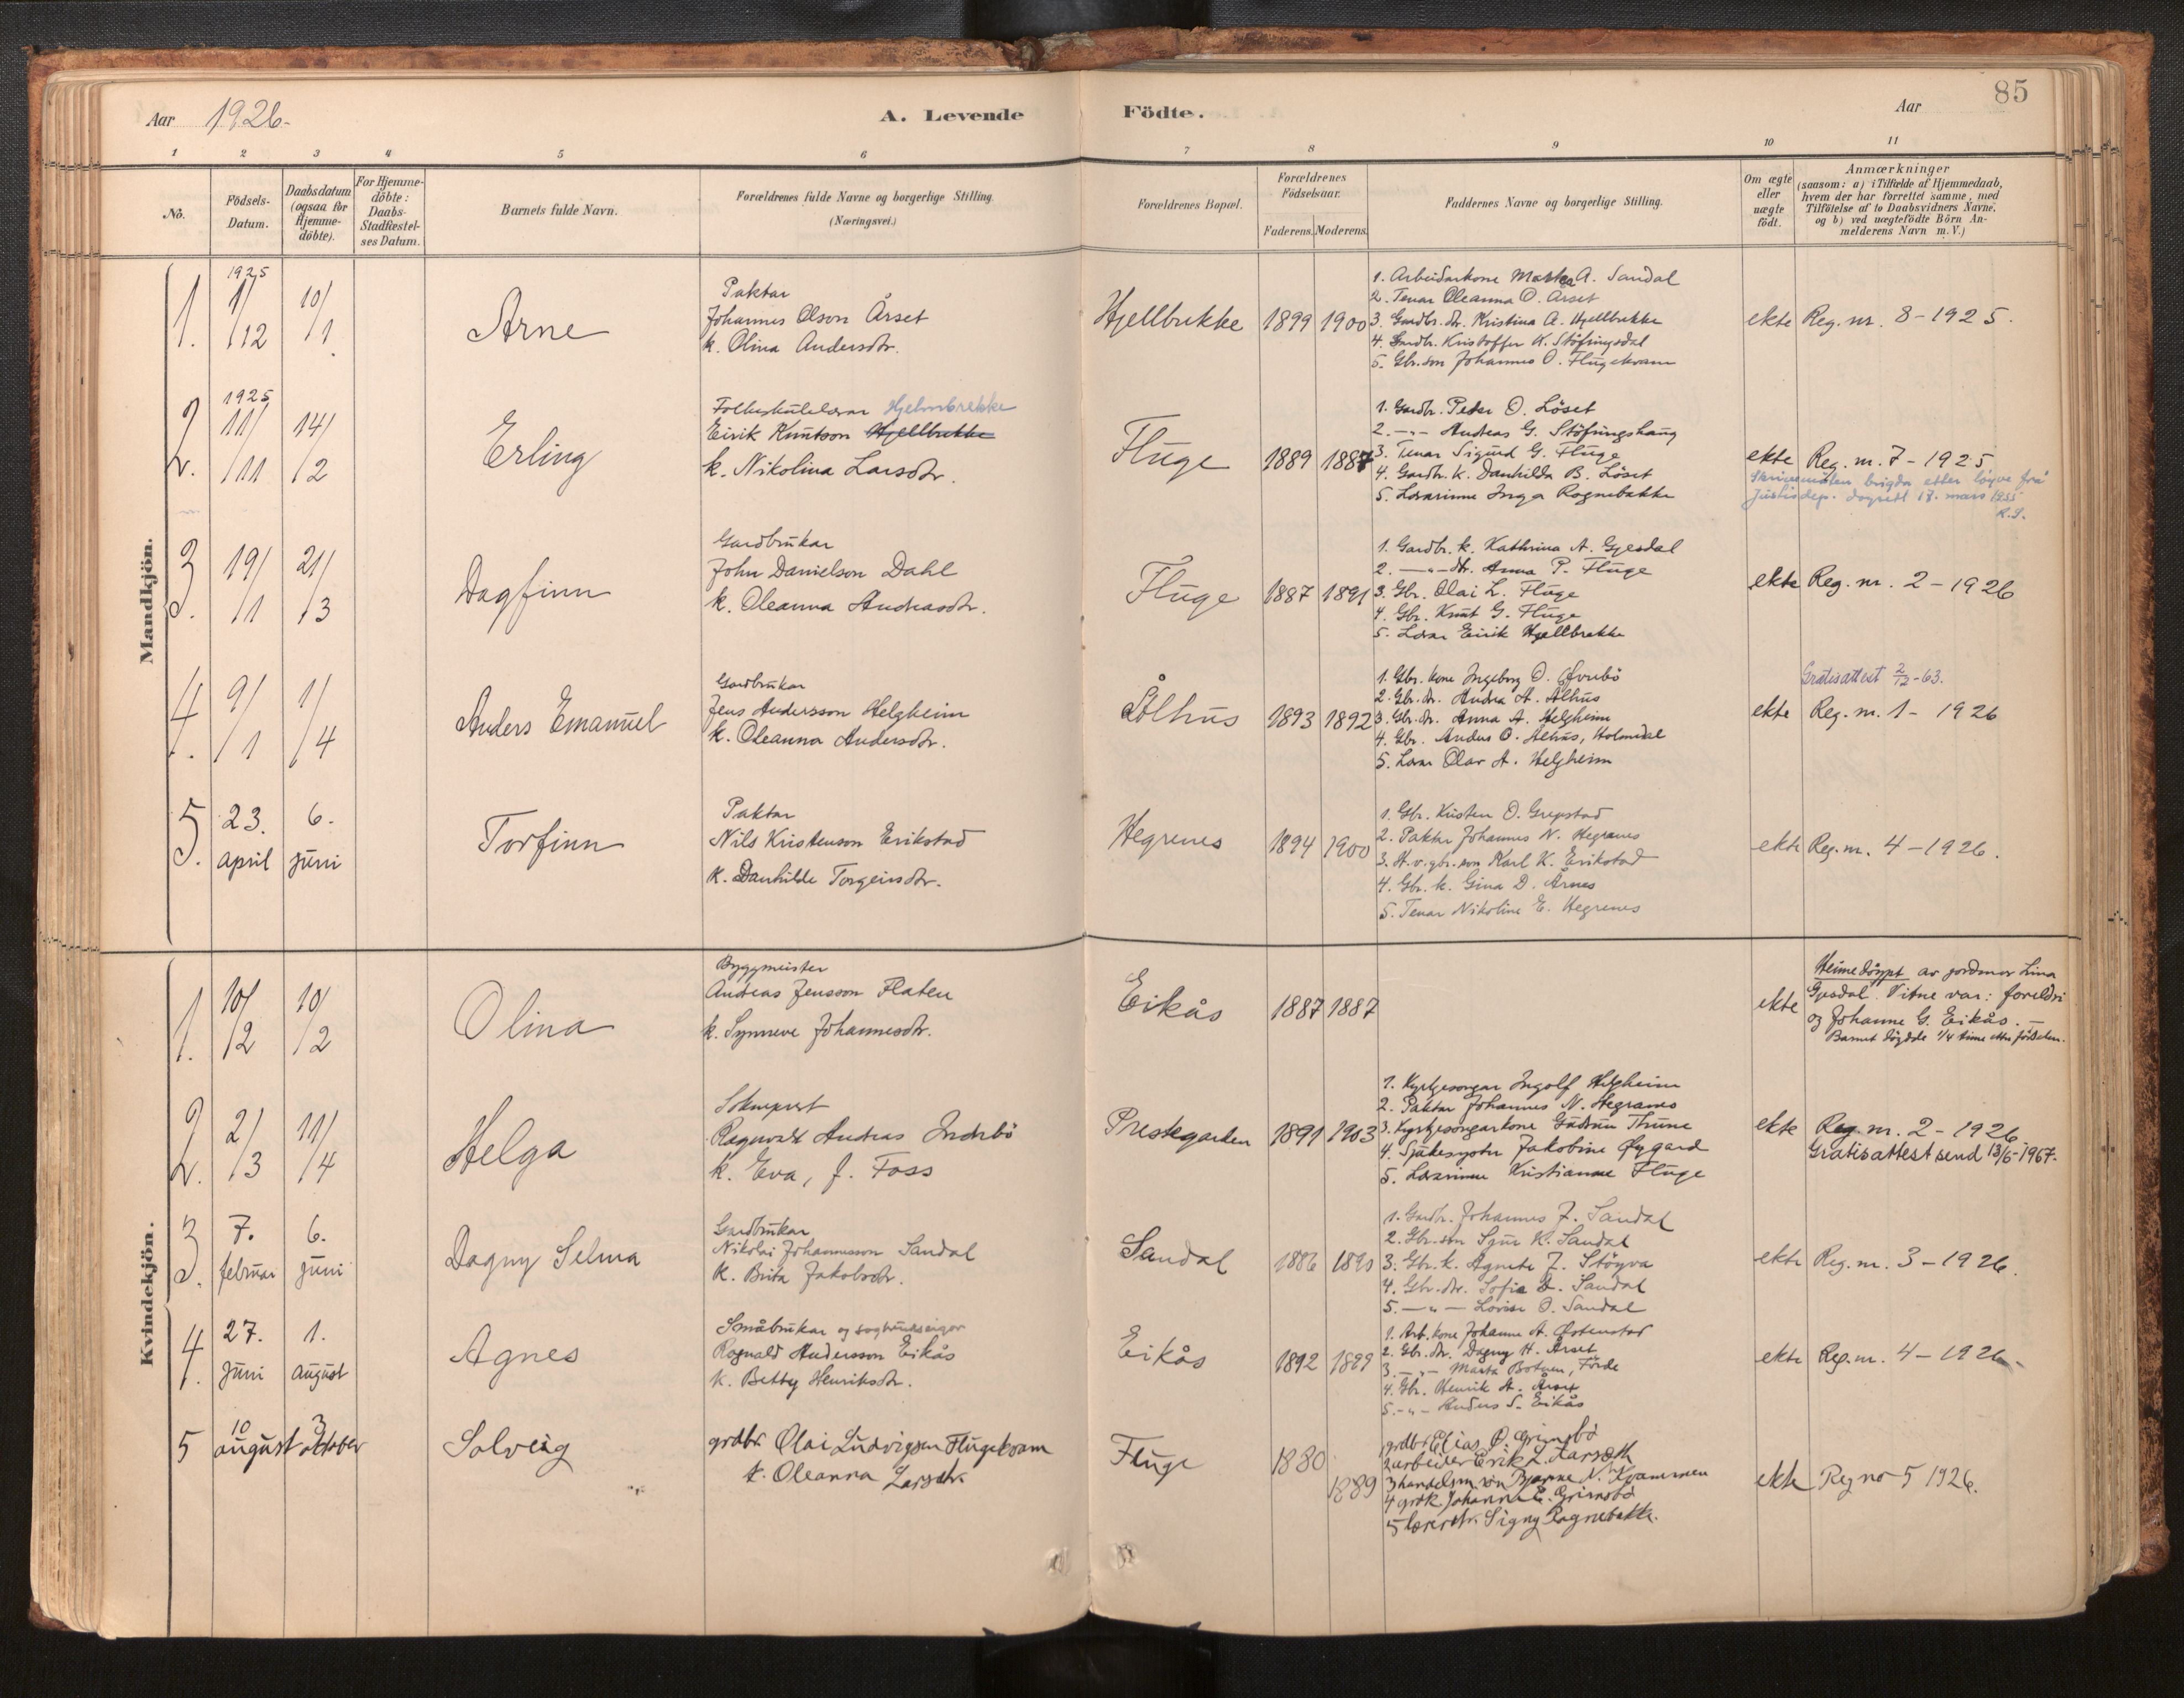 85
Aar 1926.
A. Levende Födte.
Aar
1 2 3 4 5 6 7 8 9 10 11
No.
Födsels-Datum.
Daabsdatum (ogsaa for Hjemme-döbte).
For Hjemme-döbte: Daabs-Stadfæstel-ses Datum.
Barnets fulde Navn.
Forældrenes fulde Navne og borgerlige Stilling.
(Næringsvei.)
Forældrenes Bopæl.
Forældrenes Födselsaar.
Faderens. Moderens.
Faddernes Navne og borgerlige Stilling.
Om ægte eller uægte födt.
Anmærkninger
(saasom: a) i Tilfælde af Hjemmedaab,
hvem der har forrettet samme, med
Tilföielse af to Daabsvidners Navne.
og b) ved uægtefödte Börn An-
melderens Navn m.V.)
Mandkjön.
1. 1925 1/12 10/1 Arne
Paktar
Johannes Olson Årset
k. Olina Andersdtr.
Hjellbrekke 1899 1900
1. Arbeidarkone Marta A. Sandal
2. Tenar Oleanna O. Årset
3. Gardbr. dtr. Kristina A. Hjellbrekke
4. Gardbr. Kristoffer K. Stöfringsdal
5. Gbr. son Johannes O. Flugekvam
ekte Reg. nr. 8-1925.
2. 1925 11/11 14/2 Erling
Folkeskulelærar Hjelmbrekke
Eirik Knutson Hjellbrekke
k. Nikolina Larsdtr.
Fluge 1889 1887
1. Gardbr. Peder O. Löset
2. -"- Andreas G. Stöfringshaug
3. Tenar Sigurd G. Fluge
4. Gardbr. k. Danhilda B. Löset
5. Lærarinne Inga Rognebakke
ekte Reg. nr. 7-1925
Skrivemåten brigda etter löyve frå
Justisdep. dagsett 17. mars 1955
R.S.
3. 19/1 21/3 Dagfinn
Gardbrukar
John Danielson Dahl
k. Oleanna Andreasdtr.
Fluge 1887 1891
1. Gardbr. k. Kathrina A. Gjesdal
2. -"- dtr. Anna P. Fluge
3. Gbr. Olai L. Fluge
4. Gbr. Knut G. Fluge
5. Lærar Eirik Hjellbrekke
ekte Reg. nr. 2-1926
4. 9/1 1/4 Anders Emanuel
Gardbrukar
Jens Andersson Helgheim
k. Oleanna Andersdtr.
Ålhus 1893 1892
1. Gbr. kone Ingeborg O. Övrebö
2. Gbr. dr. Andrea A. Ålhus
3. Gbr. dr. Anna A. Helgheim
4. Gbr. Andus O. Ålhus, Holmedal
5. Lærar Olav A. Helgheim
Gratisattest 2/12-63.
ekte Reg. nr. 1-1926
5. 23. april 6. juni Torfinn
Paktar
Nils Kristenson Erikstad
k. Danhilde Torgeirsdtr.
Hegrenes 1894 1900
1. Gbr. Kristen O. Grepstad
2. Paktar Johannes N. Hegrenes
3. H.v. gbr. son Karl K. Erikstad
4. Gbr. k. Gina D. Årnes
5. Tenar Nikoline E. Hegrenes
ekte Reg. nr. 4-1926.
Kvindekjön.
1. 10/2 10/2 Olina
Byggmeister
Andreas Jensson Flaten
k. Synneve Johannesdtr.
Eikås 1887 1887
ekte Heimedöypt av jordmor Lina
Gjesdal. Vitne var: foreldri
og Johanne G. Eikås. -
Barnet döydde 1/4 time etter födselen.
2. 2/3 11/4 Helga
Sokneprest
Ragnvald Andreas Indrebö
k. Eva, f. Foss
Prestegarden 1891 1903
1. Kyrkjesongar Ingolf Helgheim
2. Paktar Johannes N. Hegrenes
3. Kyrkjesongarkone Gudrun Thune
4. Sjukesyster Jakobine Öygard
5. Lærarinne Kristianne Fluge
ekte Reg. nr. 2-1926
Gratisattest send 13/6-1967.
3. 7. februar 6. juni Dagny Selma
Gardbrukar
Nikolai Johannesson Sandal
k. Brita Jakobsdtr.
Sandal 1886 1890
1. Gardbr. Johannes J. Sandal
2. Gbr. son Sjur K. Sandal
3. Gbr. k. Agnete J. Stöyva
4. Gbr. dtr. Sofie D. Sandal
5. -"- Lovise O. Sandal
ekte Reg. nr. 3-1926.
4. 27. juni 1. august Agnes
Småbrukar og sagbrukseigar
Ragnald Andersson Eikås
k. Betty Henriksdtr.
Eikås 1892 1899
1. Arb. kone Johanne A. Östenstad
2. Gbr. dtr. Dagny H. Årset
3. -"- Marta Botnen, Förde
4. Gbr. Henrik A. Årset
5. -"- Andus S. Eikås
ekte Reg. nr. 4-1926
5 10 august 3 oktober Solveig
grdbr. Olai Ludvigsen Flugekvam
k. Oleanna Larsdtr.
Fluge 1880 1889
grdbr Elias O. Grimsbö
2 arbeider Erik L. Aarseth
3 handelsm. sön Bjarne N. Kvammen
4 grdk. Johanne E. Grimsbö
5 lærerdtr. Signy Rognebakke.
ekte Reg no 5 1926.